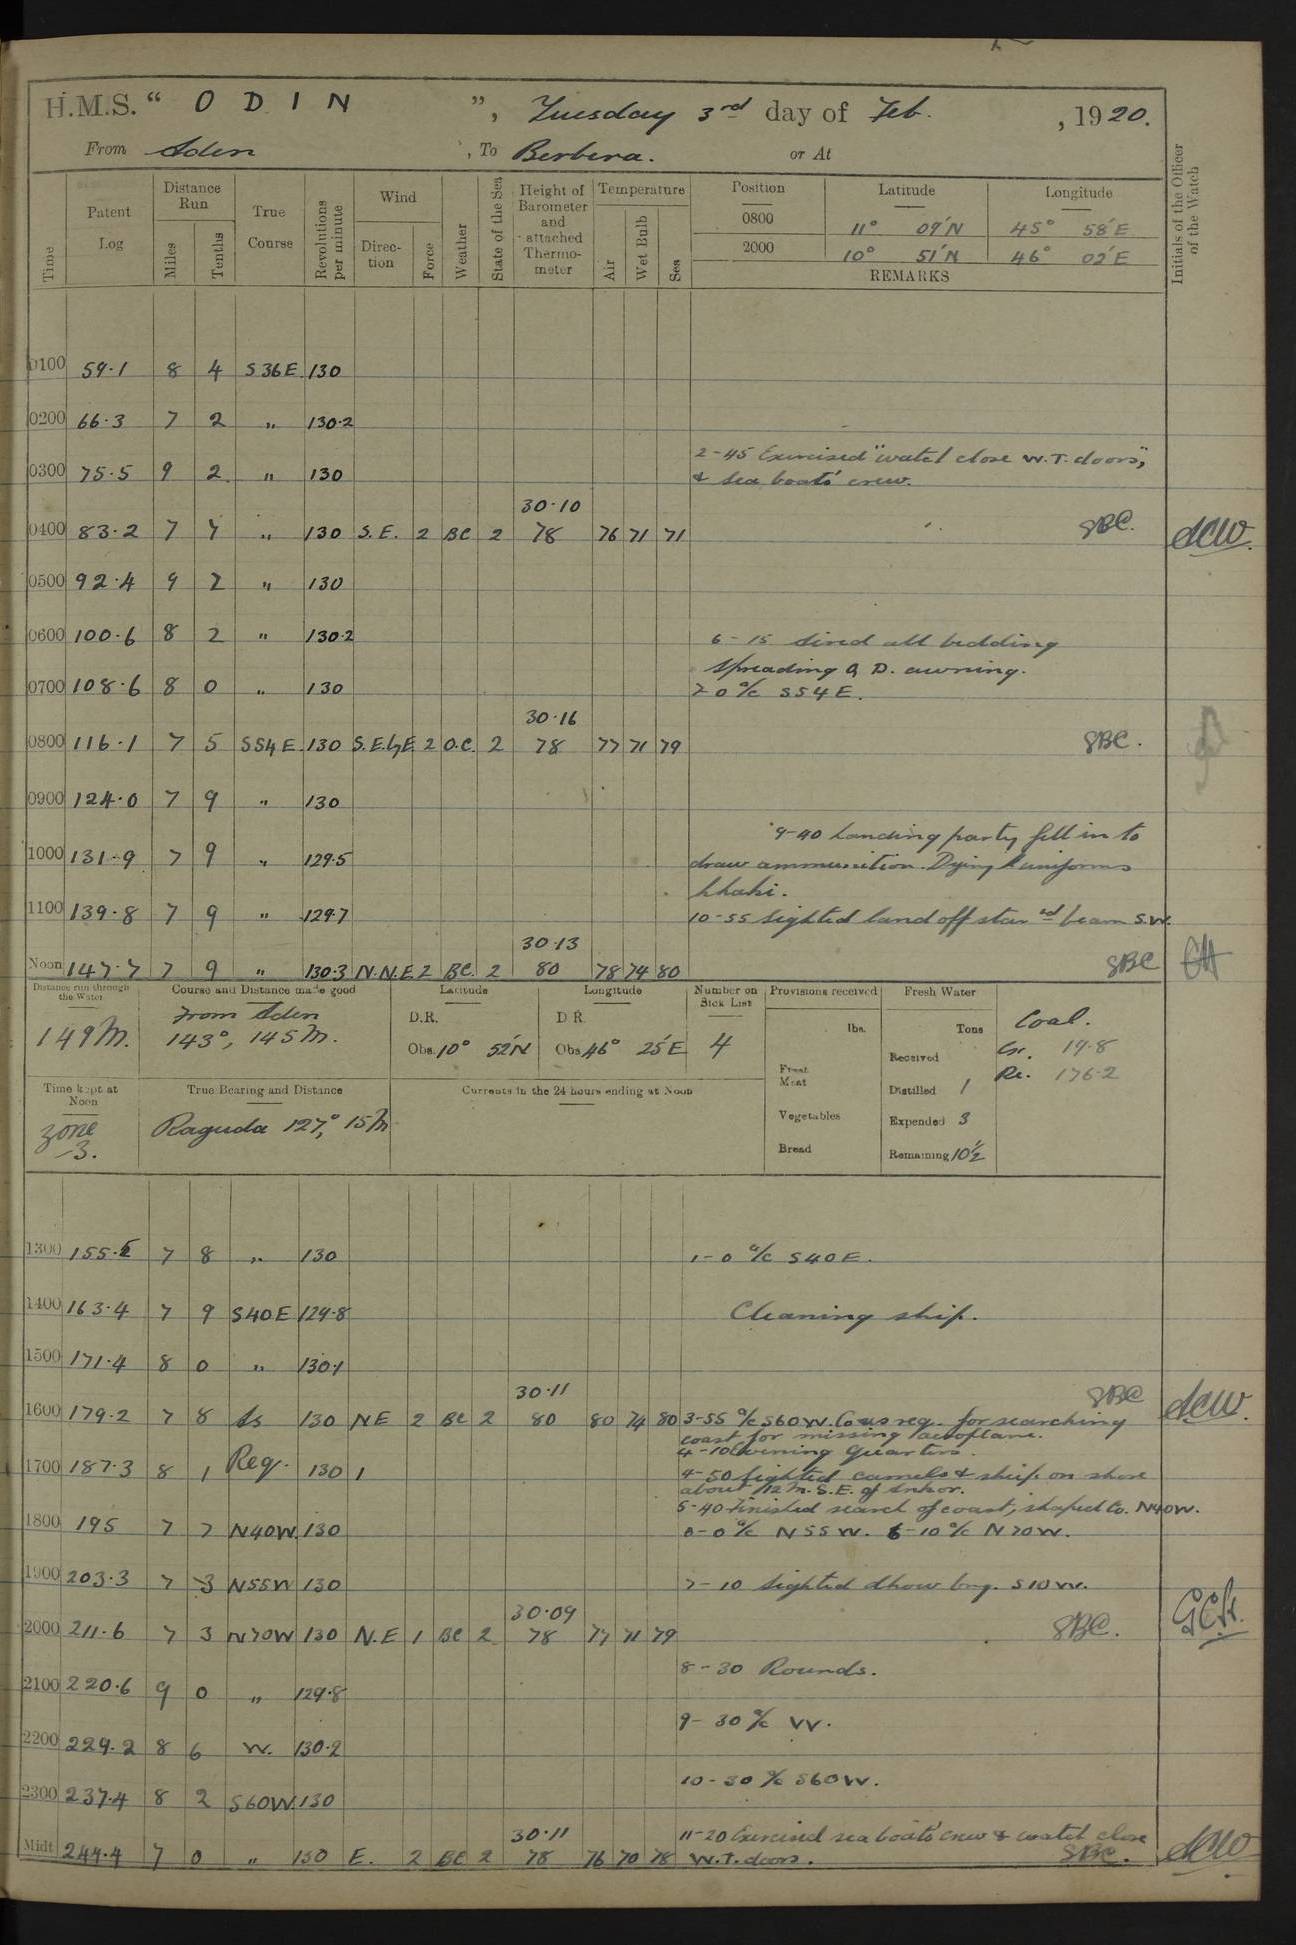 H.M.S. “ ODIN ”, Tuesday 3rd day of Feb. , 1920.
From Aden , To Berbera. or At
Time Patent Log Distance Run Miles Tenths True Course Revolutions per minute Wind Direction Force Weather State of the Sea Height of Barometer and attached Thermometer Temperature Air Wet Bulb Sea Position Latitude Longitude Initials of the Officer of the Watch
0800 11° 09'N 45° 58'E
2000 10° 51'N 46° 02'E
REMARKS
0100 59.1 8 4 S36E 130
0200 66.3 7 2 " 130.2
2-45 Exercised "watch close W.T. doors",
0300 75.5 9 2 " 130 & sea boats' crew.
30.10
0400 83.2 7 7 " 130 S.E. 2 BC 2 78 76 71 71 SBC. ACW.
0500 92.4 9 2 " 130
0600 100.6 8 2 " 130.2 6-15 Aired all bedding
spreading Q D. awning.
0700 108.6 8 0 " 130 7-0 a/c S54E.
30.16
0800 116.1 7 5 S54E 130 S.E.byE 2 O.C. 2 78 77 71 79 SBC.
0900 124.0 7 9 " 130
9-40 Landing party fell in to
1000 131.9 7 9 " 129.5 draw ammunition. Dying uniforms
khaki.
1100 139.8 7 9 " 129.7 10-55 Sighted land off starbd beam S.W.
30.13
Noon 147.7 7 9 " 130.3 N.N.E 2 BC. 2 80 78 74 80 SBC
Distance run through the Water Course and Distance made good Latitude Longitude Number on Sick List Provisions received Fresh Water
149 M. From Aden 143°, 145 M. D.R. D R. 4 lbs. Tons Coal.
Obs. 10° 52'N Obs. 46° 25'E Received Gr. 19.8
Fresh Meat Distilled 1 Re. 176.2
Time kept at Noon True Bearing and Distance Currents in the 24 hours ending at Noon
Zone -3. Raguda 127°, 15 M Vegetables Expended 3
Bread Remaining 10½
1300 155.5 7 8 " 130 1-0 a/c S40E.
1400 163.4 7 9 S40E 129.8 Cleaning ship.
1500 171.4 8 0 " 130.1
30.11 SBC
1600 179.2 7 8 As 130 NE 2 BC 2 80 80 74 80 3-55 a/c S60W. Co as req. for searching ACW.
coast for missing aeroplane.
Req. 4-10 Evening Quarters.
1700 187.3 8 1 130 1 4-50 Sighted camels & ship on shore
about 12 M. S.E. of Ankor.
5-40 Finished search of coast, shaped Co. N40W.
1800 195 7 7 N40W. 130 6-0 a/c N55W. 6-10 a/c N70W.
1900 203.3 7 3 N55W 130 7-10 Sighted dhow brg. S10W.
30.09
2000 211.6 7 3 N70W 130 N.E 1 BC 2 78 77 71 79 SBC.
8-30 Rounds.
2100 220.6 9 0 " 129.8
9-30 a/c W.
2200 229.2 8 6 W. 130.2
10-30 a/c S60W.
2300 237.4 8 2 S60W. 130
30.11 11-20 Exercised sea boats' crew & watch close
Midt 244.4 7 0 " 130 E. 2 BC 2 78 76 70 78 W.T. doors. SBC. ACW